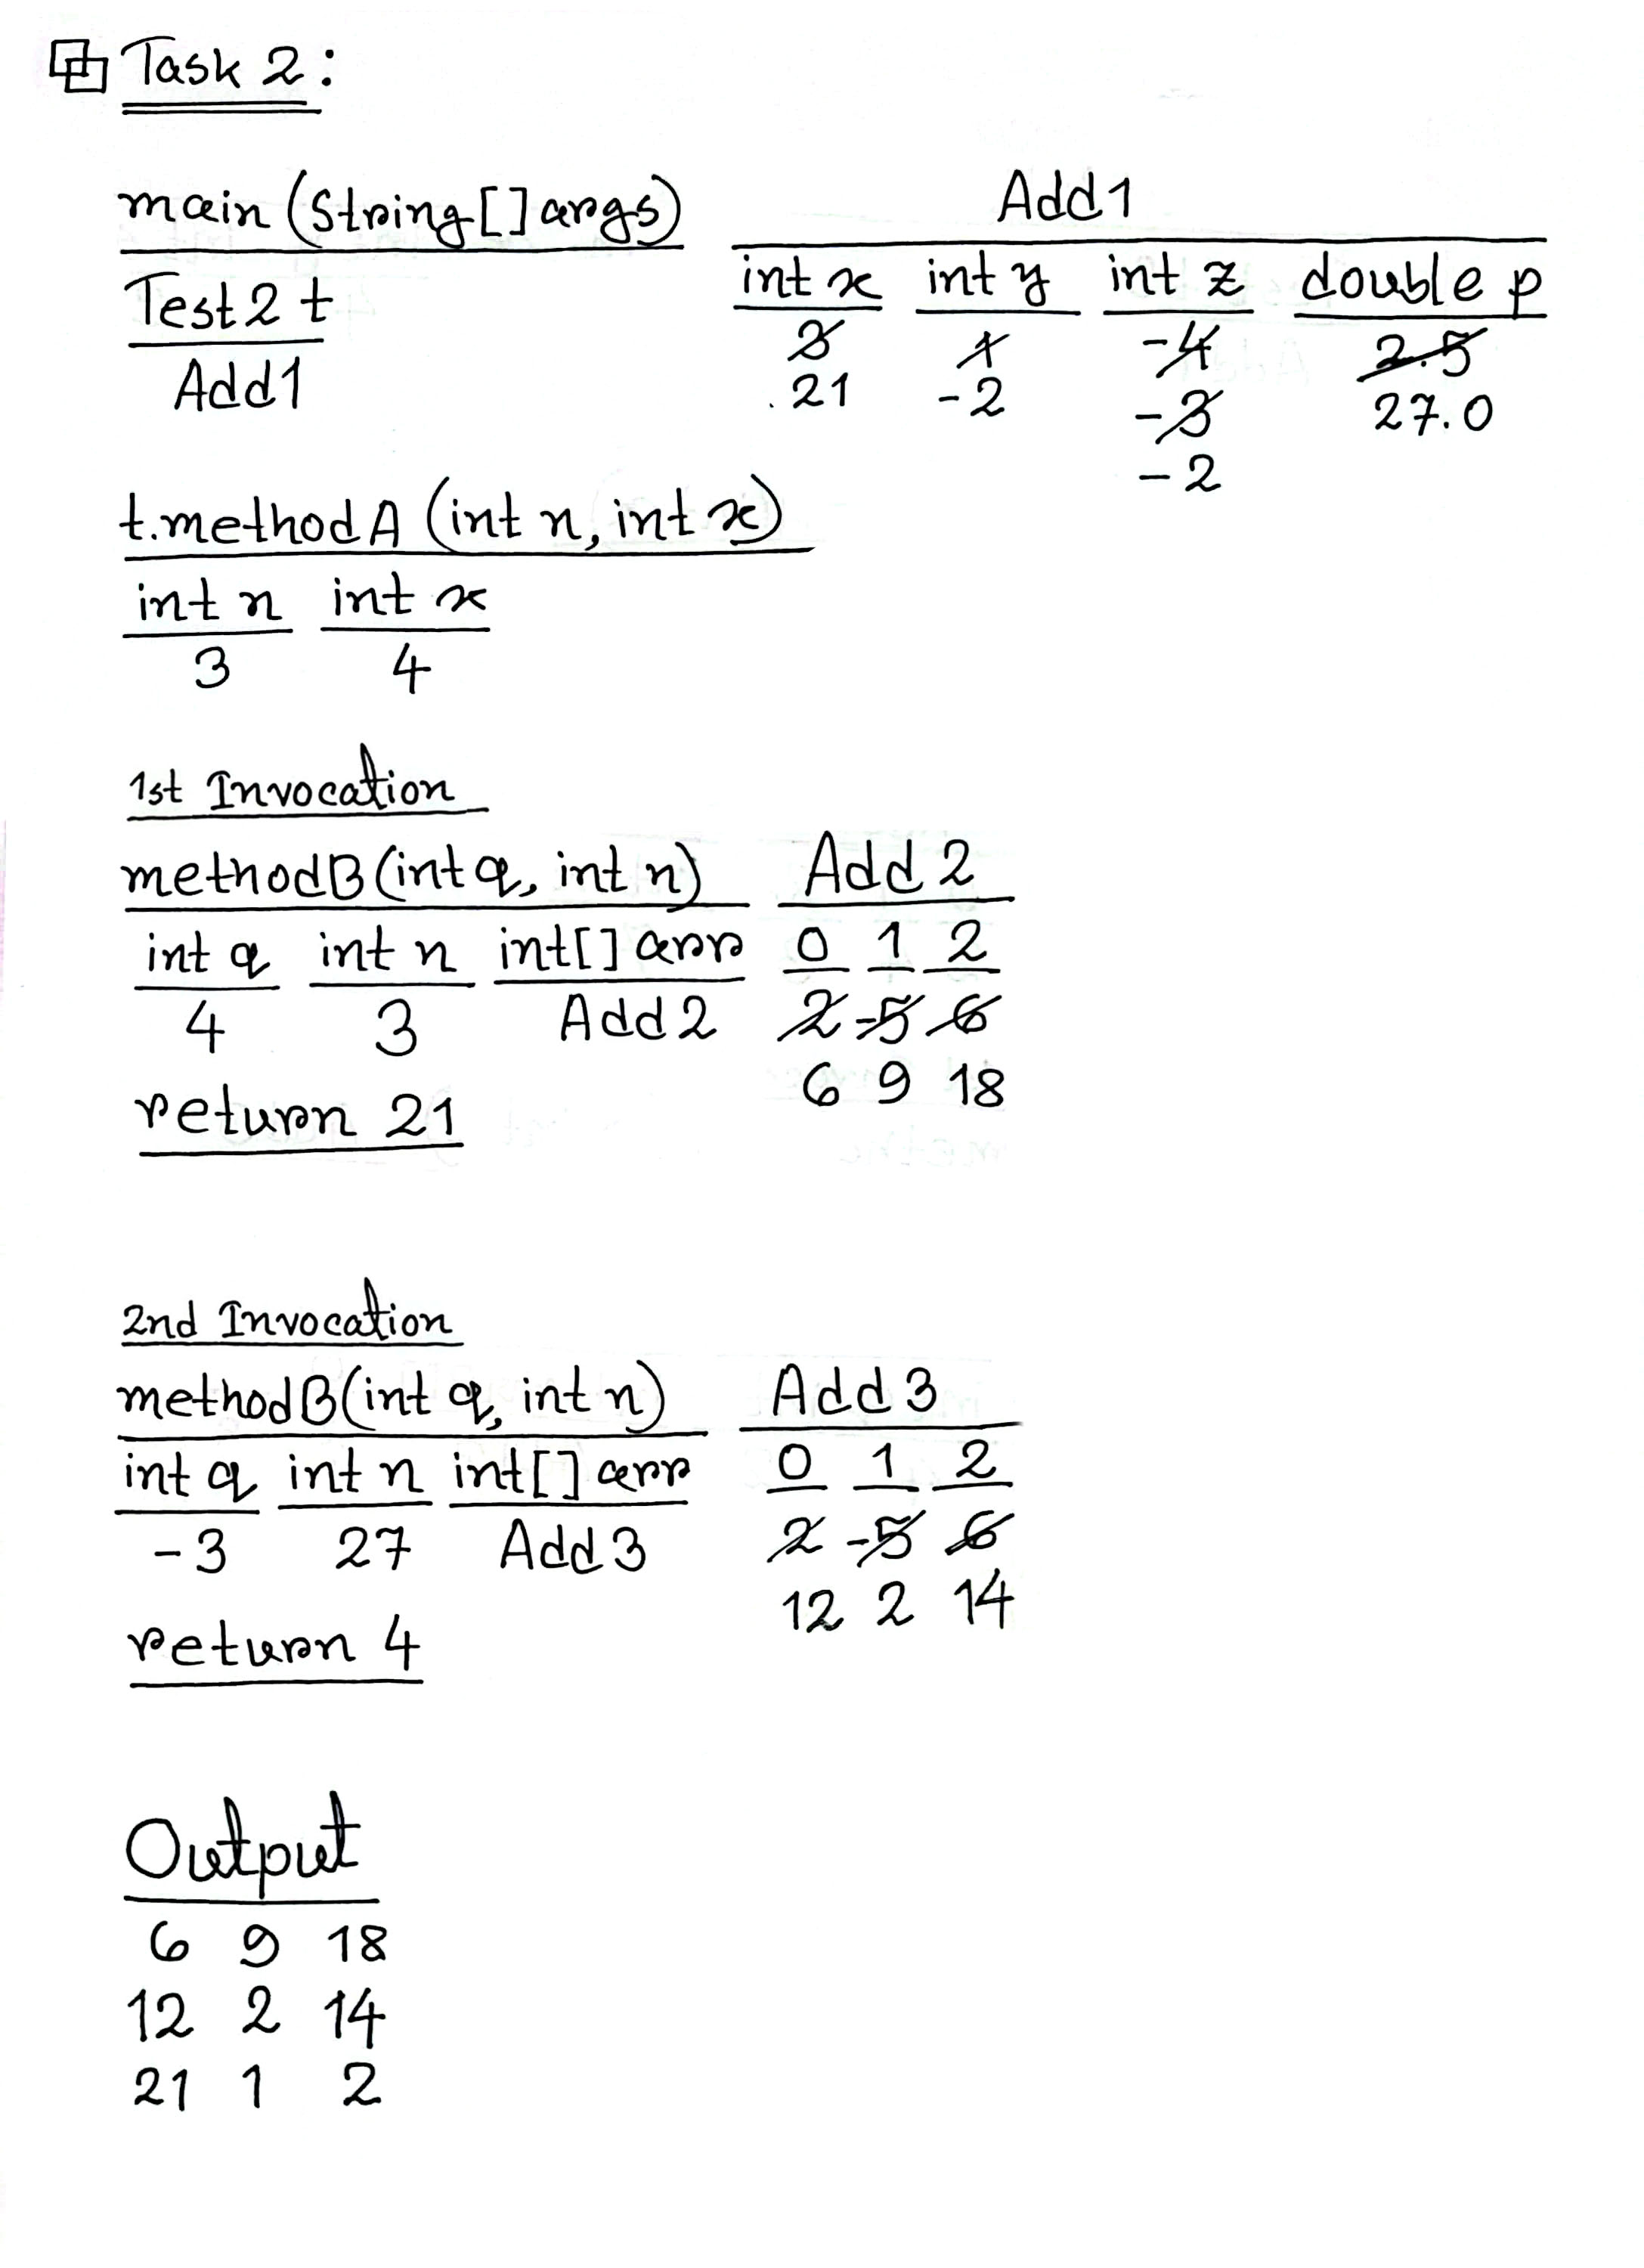 Task 2:
main (String[] args)
Test2 t
Add1
Add1
int x int y int z double p
3 1 -4 2.5
21 -2 -3 27.0
-2
t.methodA (int n, int x)
int n int x
3 4
1st Invocation
methodB (int q, int n)
int q int n int[] arr
4 3 Add2
return 21
Add 2
0 1 2
2 -5 6
6 9 18
2nd Invocation
methodB(int q, int n)
int q int n int[] arr
-3 27 Add3
return 4
Add 3
0 1 2
2 -5 6
12 2 14
Output
6 9 18
12 2 14
21 1 2